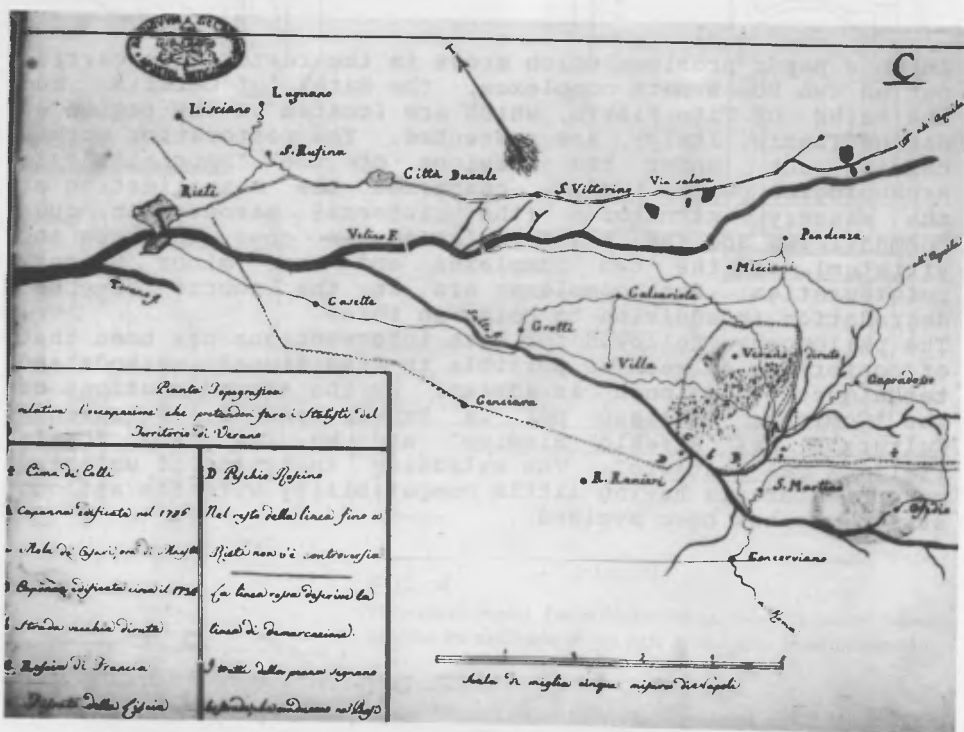 C
Lugnano
Lisciano
S. Rufina
Rieti
Città Ducale
S. Vittorino
Via salara
Velino F.
Pendenza
Micciani
Casette
Calcariola
Grotti
Villa
Varano diruto
Capradosso
Cenciara
R. Raniari
S. Martino
Offidio
Concerviano
Pianta Topografica
relativa l'occupazione che pretendon fare i Statisti del
Territorio di Varano
Cima de Colli
Capanna edificata nel 1786
Mola de Cesari, ora di
Capanna edificata circa il 1736
Strada vecchia diruta
di Francia
della
D Peschio Rofcino
Nel resto della linea fino a
Rieti non v'è controversia
La linea rossa descrive la
linea di demarcazione.
I tratti della penna segnano
conducono
Scala di miglia cinque misura di Napoli